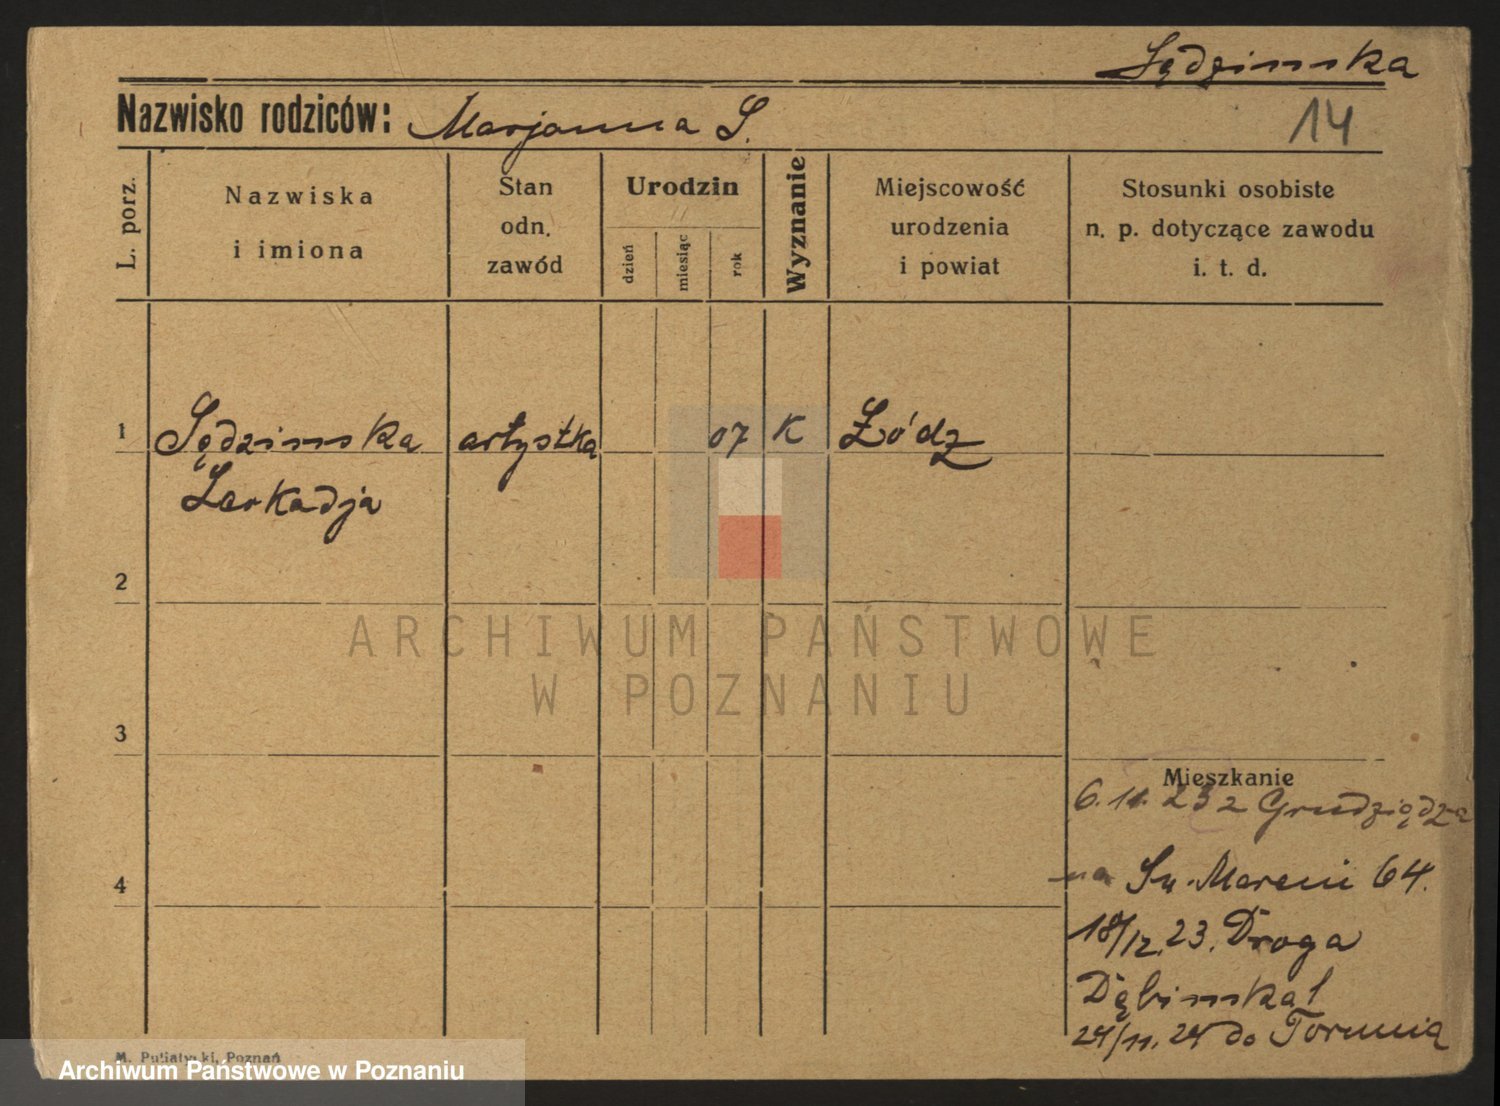 Sędzimska
Nazwisko rodziców: Marjanna S.
14
L. porz.
Nazwiska
i imiona
Stan
odn.
zawód
Urodzin
dzień
miesiąc
rok
Wyznanie
Miejscowość
urodzenia
i powiat
Stosunki osobiste
n. p. dotyczące zawodu
i. t. d.
1 Sędzimska artystka 07 K Łódź
Leokadja
2
3
4
Mieszkanie
6.11.23 z Grudziądza
na Św. Marcin 64.
18/12.23. Droga
Dębinska 1
24/11.24 do Torunia
M. Putiatycki, Poznań
ARCHIWUM PAŃSTWOWE
W POZNANIU
Archiwum Państwowe w Poznaniu